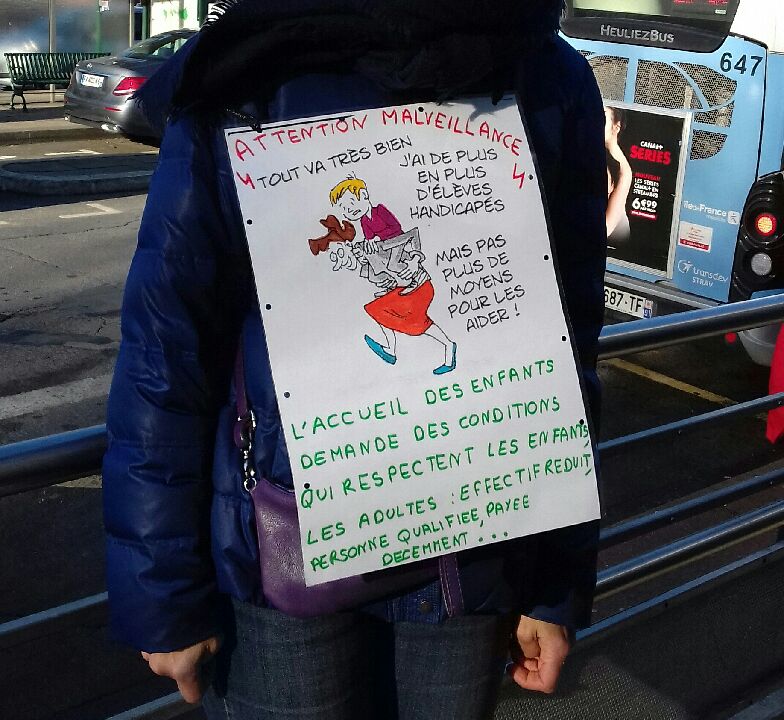 ATTENTION MALVEILLANCE
TOUT VA TRÈS BIEN
J'AI DE PLUS
EN PLUS
D'ÉLÈVES
HANDICAPÉS
MAIS PAS
PLUS DE
MOYENS
POUR LES
AIDER !
L'ACCUEIL DES ENFANTS
DEMANDE DES CONDITIONS
QUI RESPECTENT LES ENFANTS
LES ADULTES : EFFECTIF REDUIT
PERSONNE QUALIFIEE, PAYEE
DECEMMENT ...
HEULIEZBUS
647
CANAL+
SERIES
NOUVEAU
LES SÉRIES
EN STREAMING
6€99
île de France
transdev
STRAV
687-TF